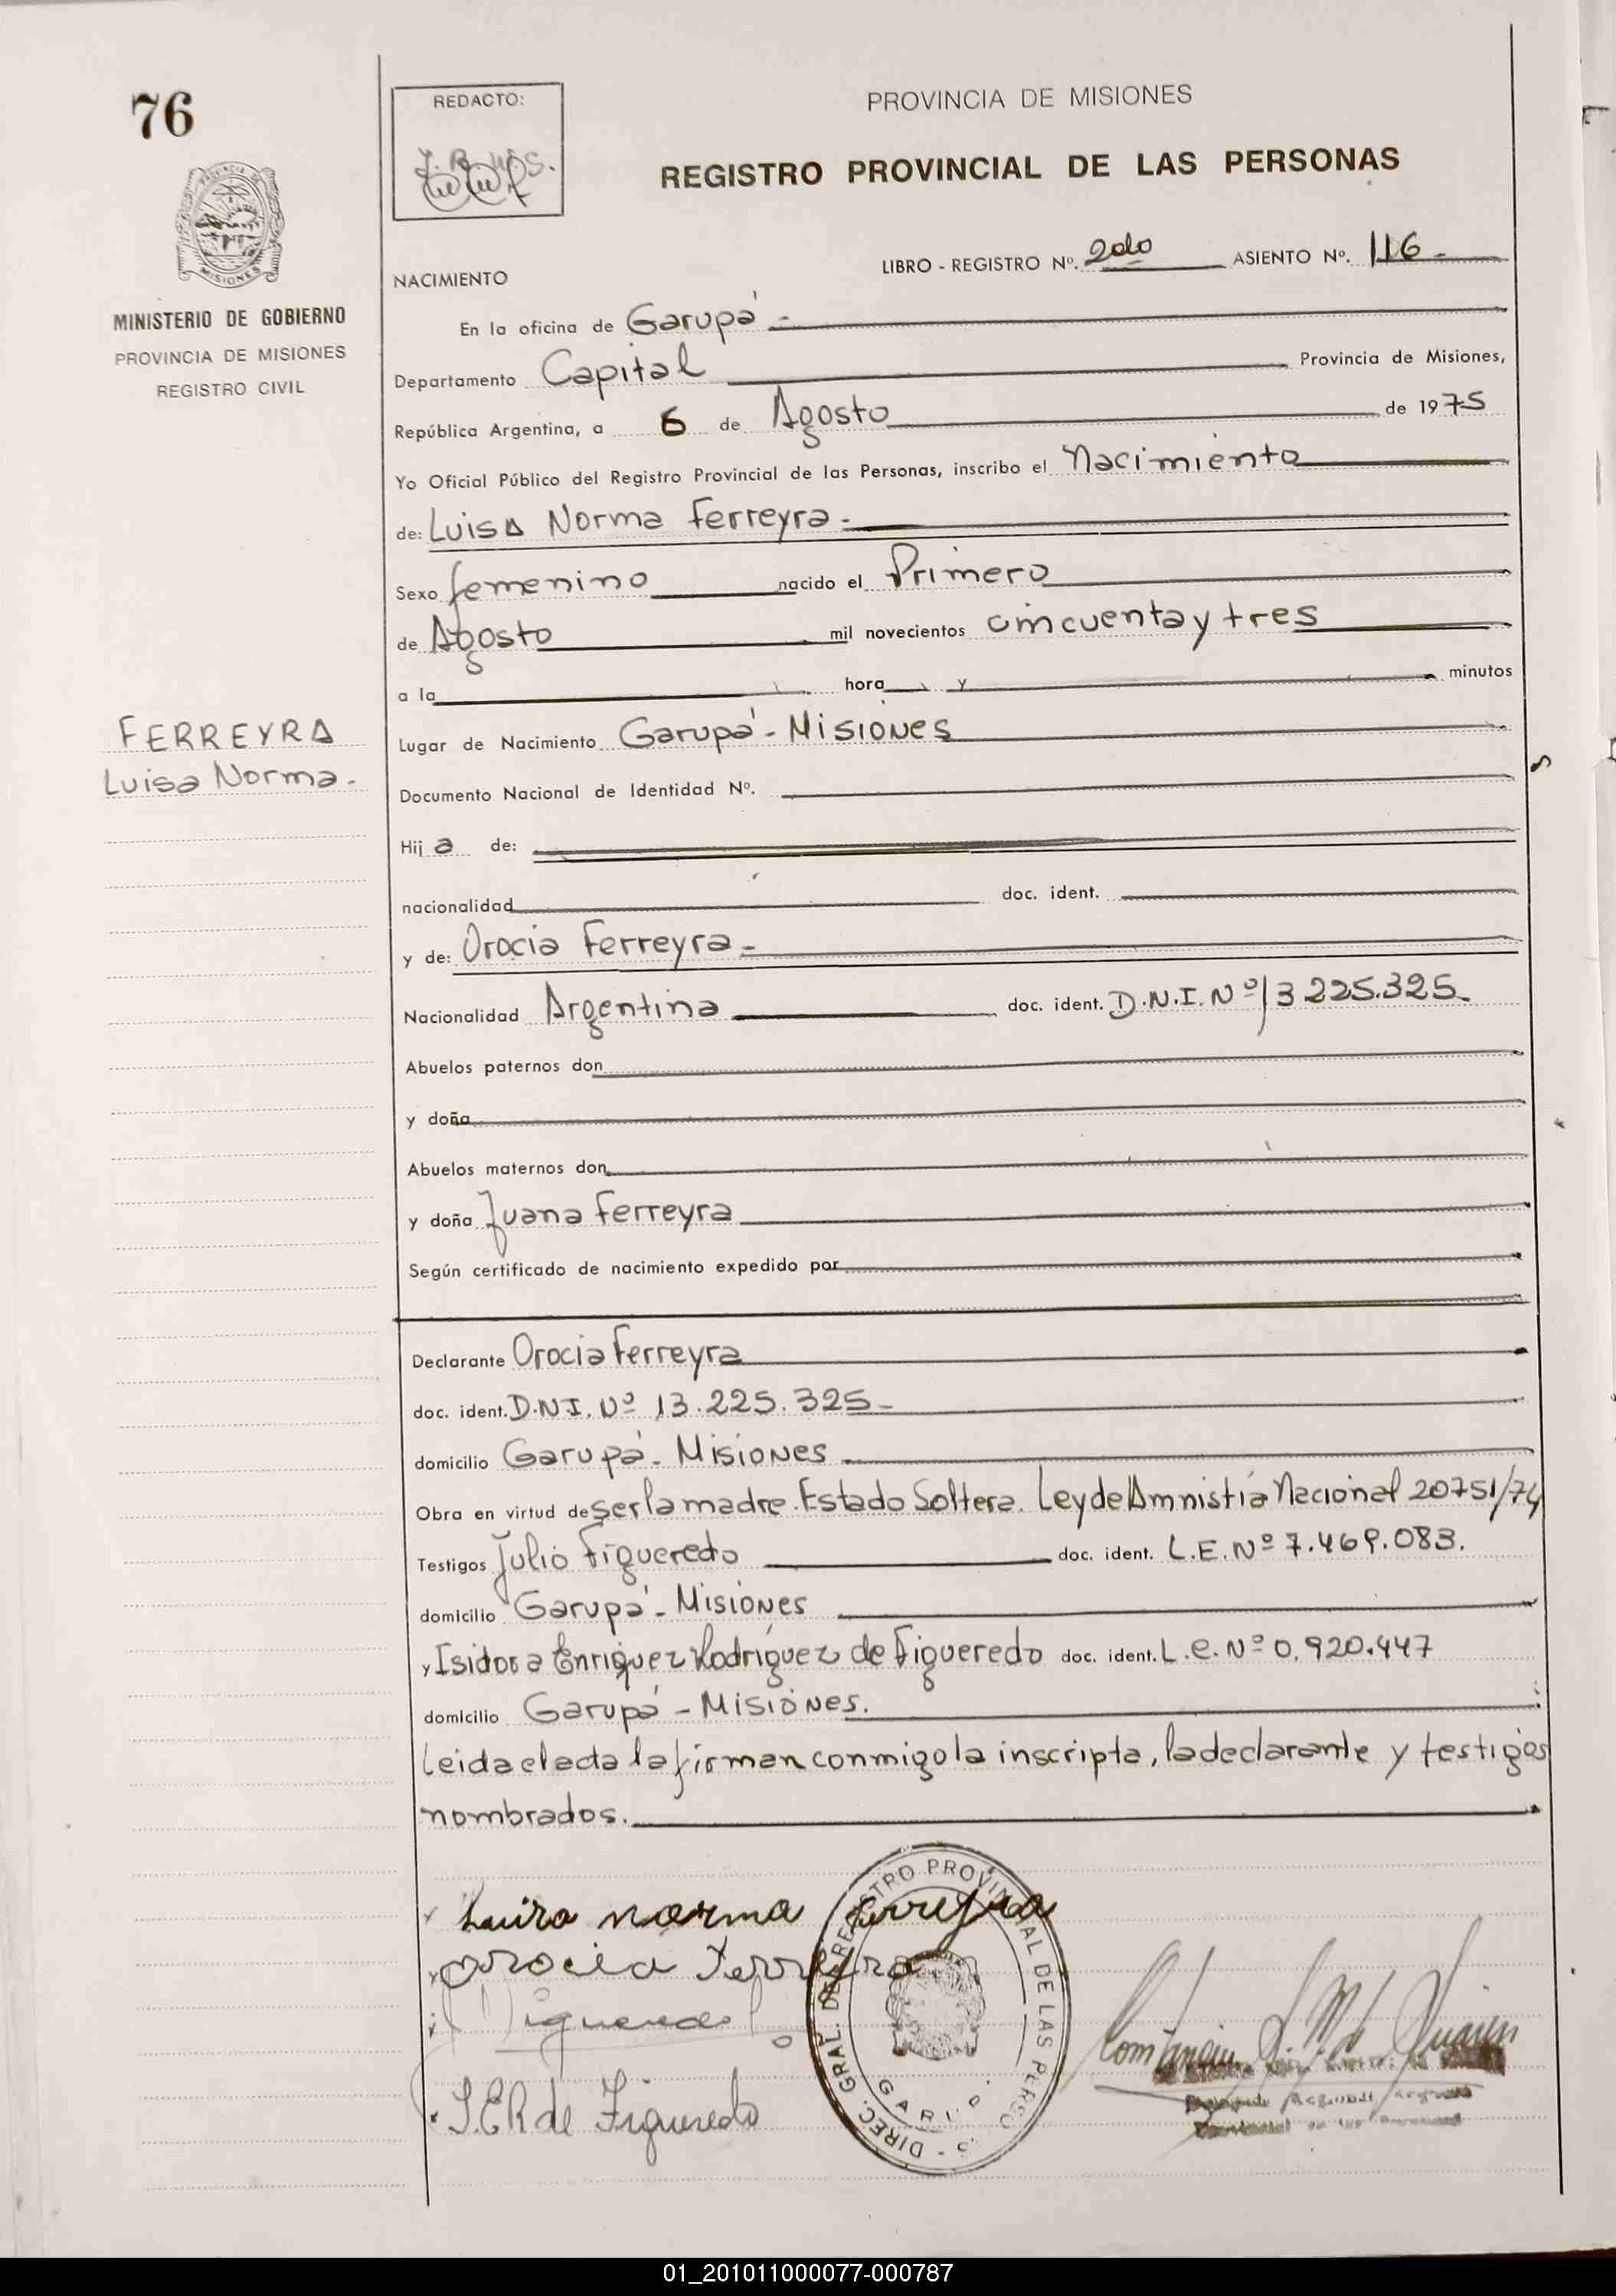 76
REDACTO:
PROVINCIA DE MISIONES
REGISTRO PROVINCIAL DE LAS PERSONAS
MISIONES
MINISTERIO DE GOBIERNO
PROVINCIA DE MISIONES
REGISTRO CIVIL
LIBRO - REGISTRO Nº. 2do ASIENTO Nº. 116 -
NACIMIENTO
En la oficina de Garupá -
Departamento Capital Provincia de Misiones,
República Argentina, a 6 de Agosto de 1975
Yo Oficial Público del Registro Provincial de las Personas, inscribo el Nacimiento
de: Luisa Norma Ferreyra -
Sexo femenino nacido el Primero
de Agosto mil novecientos cincuenta y tres
a la hora y minutos
FERREYRA
Luisa Norma -
Lugar de Nacimiento Garupá - Misiones
Documento Nacional de Identidad Nº.
Hij a de:
nacionalidad doc. ident.
y de: Orocia Ferreyra -
Nacionalidad Argentina doc. ident. D.N.I. Nº 13 225.325-
Abuelos paternos don
y doña
Abuelos maternos don
y doña Juana Ferreyra
Según certificado de nacimiento expedido por
Declarante Orocia Ferreyra
doc. ident. D.N.I. Nº 13.225.325-
domicilio Garupá - Misiones
Obra en virtud de ser la madre. Estado Soltera. Ley de Amnistía Nacional 20751/74
Testigos Julio Figueredo doc. ident. L.E. Nº 7.469.083.
domicilio Garupá - Misiones
y Isidora Enriquez Rodríguez de Figueredo doc. ident. L.E. Nº 0.920.447
domicilio Garupá - Misiones.
Leida el acta la firman conmigo la inscripta, la declarante y testigos
nombrados.
Luisa norma ferreyra
orocia Ferreyra
Figueredo
I.E.R de Figueredo
DIREC. GRAL. DEL REGISTRO PROVINCIAL DE LAS PERSO
01_201011000077-000787